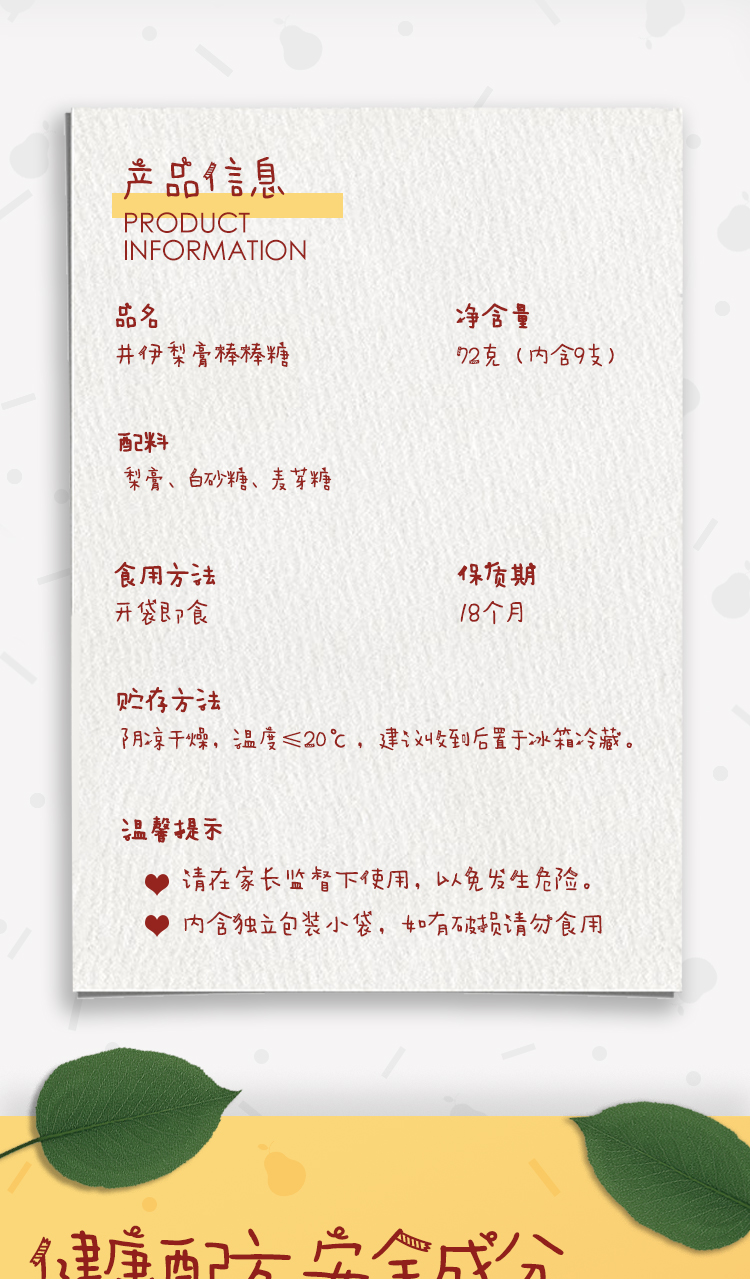 产品信息
PRODUCT
INFORMATION
品名
净含量
井伊梨膏棒棒糖
72克（内含9支）
配料
梨膏、白砂糖、麦芽糖
食用方法
保质期
开袋即食
18个月
贮存方法
阴凉干燥，温度≤20℃，建议收到后置于冰箱冷藏。
温馨提示
请在家长监督下使用，以免发生危险。
内含独立包装小袋，如有破损请勿食用
健康配方 安全成分